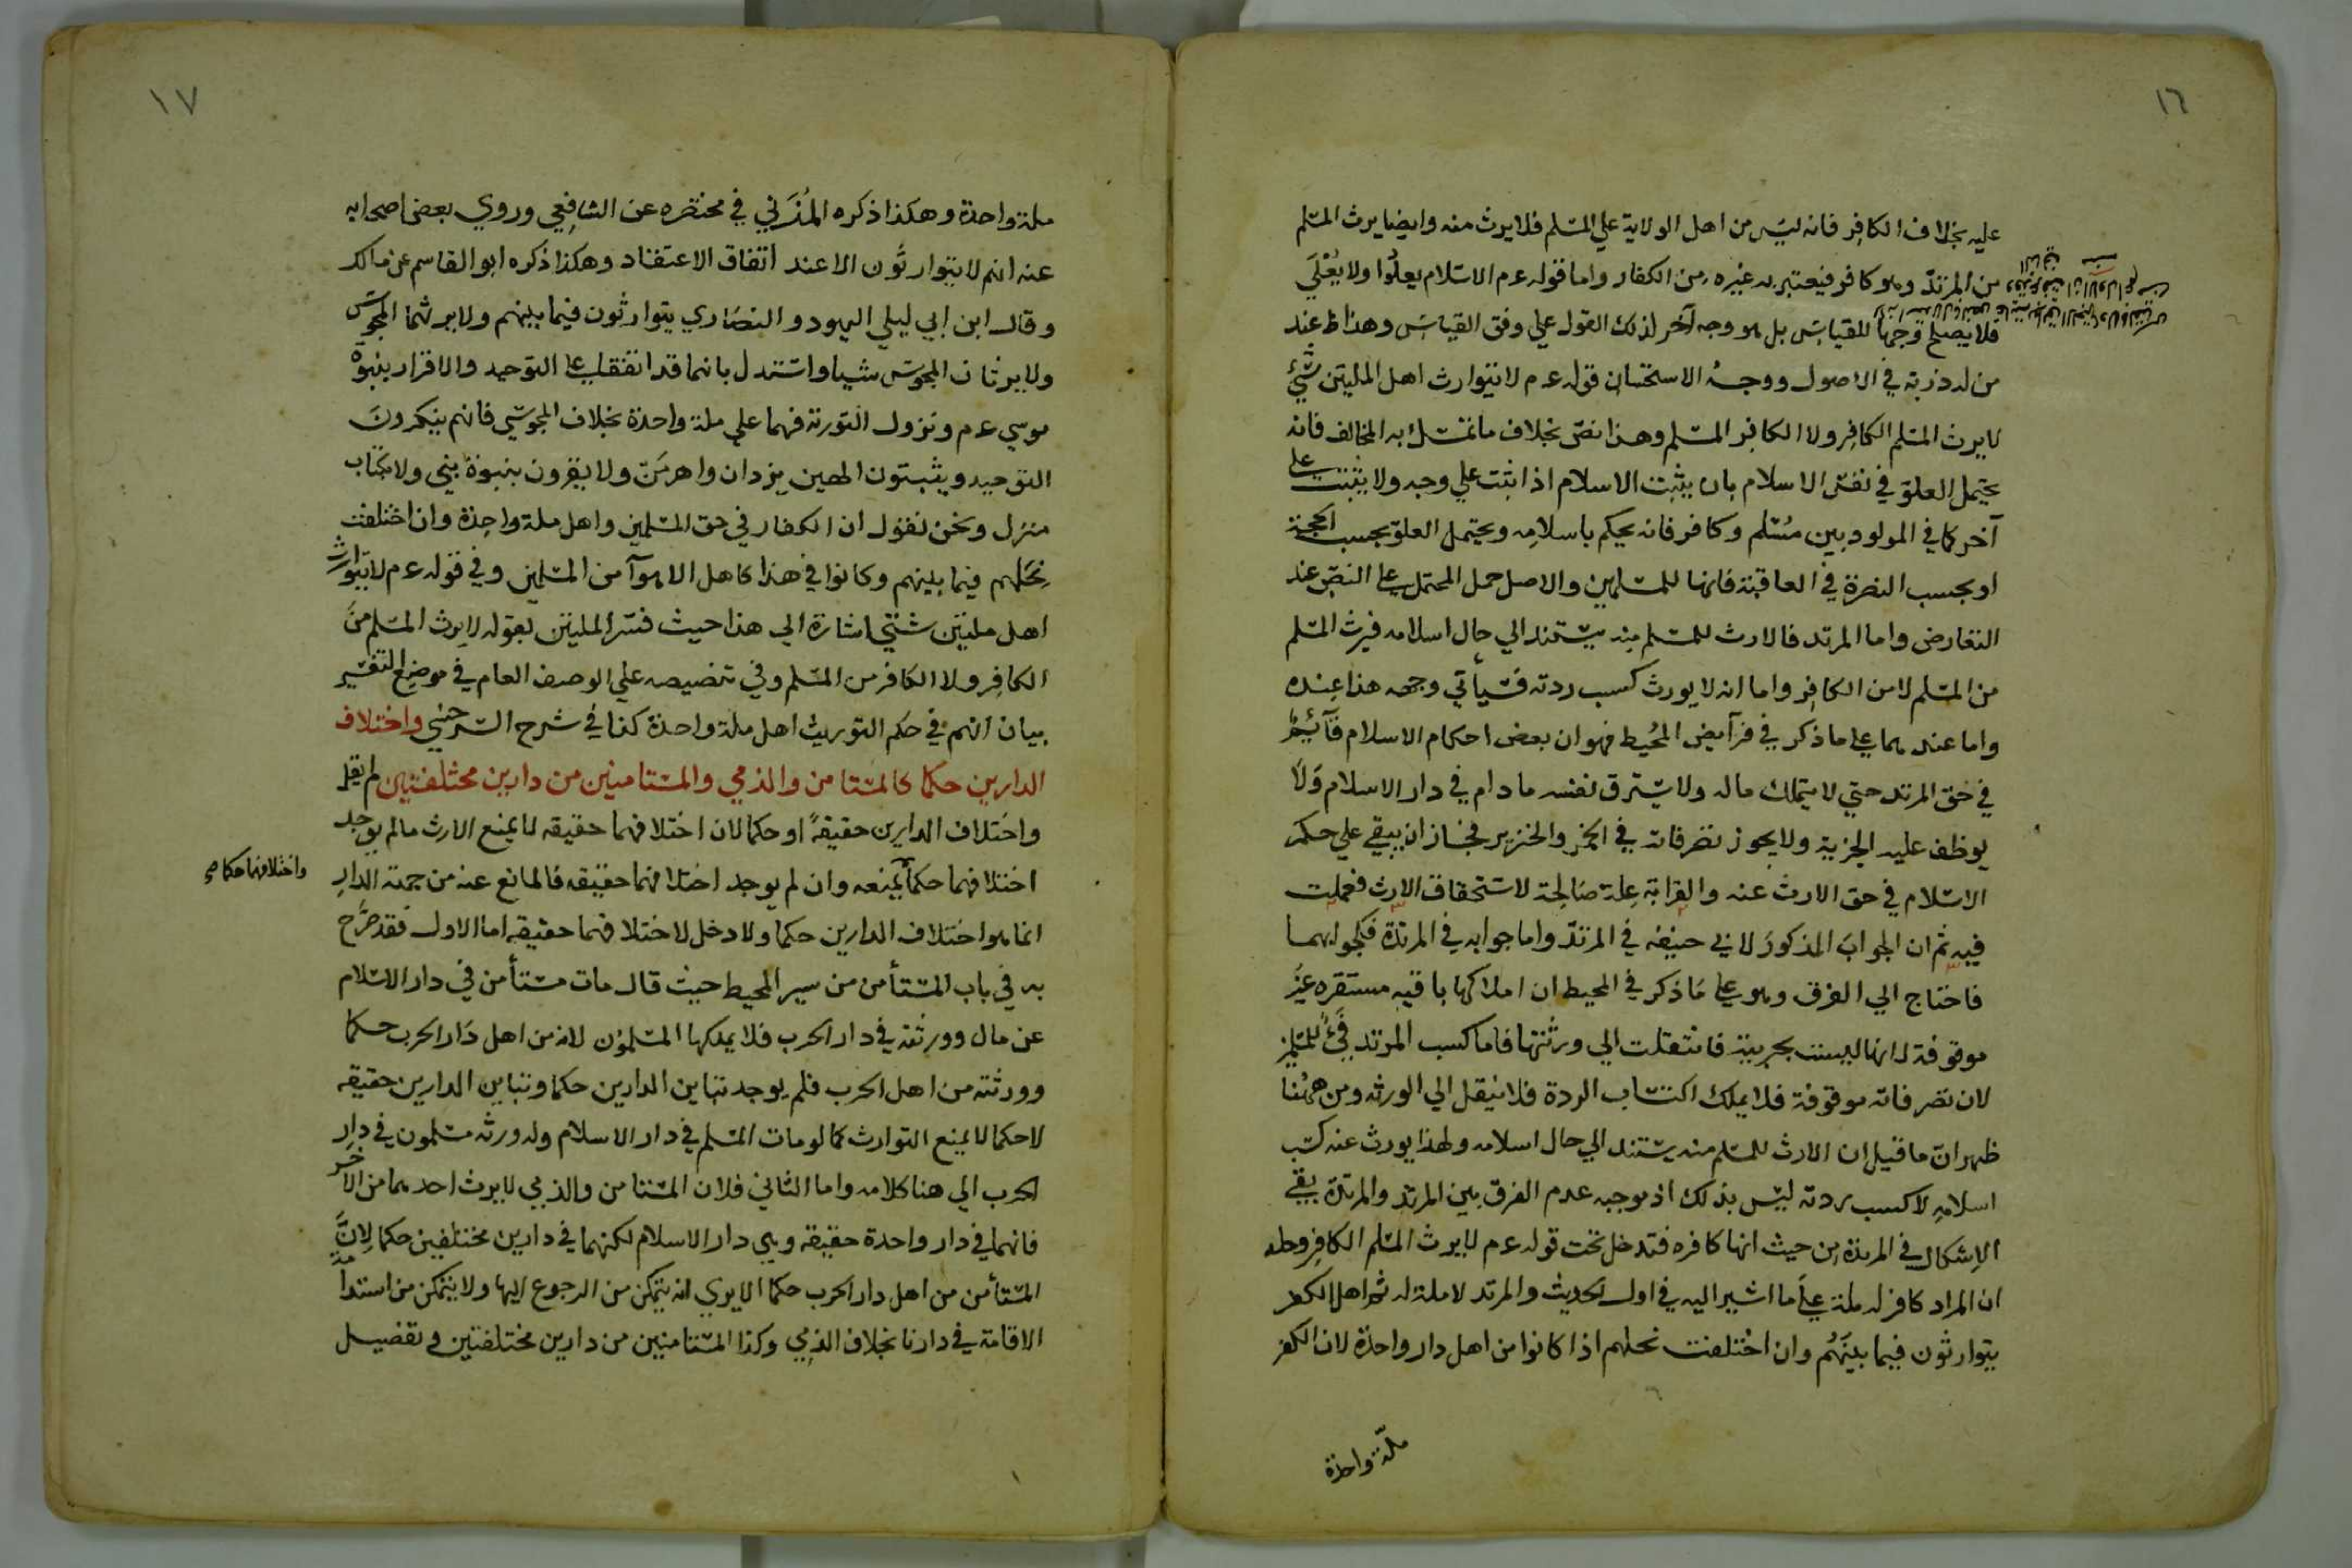 ١٦
عليه بخلاف الكافر فانه ليس من اهل الولاية علي المسلم فلا يرث منه وايضا يرث المسلم
من المرتد وهو كافر فيعتبر به غيره من الكفار واما قوله عم الاسلام يعلوا ولا يعلي
فلا يصلح وجها للقياس بل هو وجه آخر لذلك القول علي وفق القياس وهذا ظ عند
من له دربة في الاصول ووجه الاستحسان قوله عم لا يتوارث اهل الملتين شيئ
لا يرث المسلم الكافر ولا الكافر المسلم وهذا نص بخلاف ما تمسك به المخالف فانه
يحتمل العلو في نفس الاسلام بان يثبت الاسلام اذا ثبت علي وجه ولا يثبت علي
آخر كما في المولود بين مسلم وكافر فانه يحكم باسلامه ويحتمل العلو بحسب الحجة
او بحسب النصرة في العاقبة فانها للمسلمين والاصل حمل المحتمل علي النص عند
التعارض واما المرتد فالارث للمسلم منه يستند الي حال اسلامه فيرث المسلم
من المسلم لا من الكافر واما انه لا يورث كسب ردته فسيأتي وجهه هذا عنده
واما عندهما علي ما ذكر في فرآيض المحيط فهو ان بعض احكام الاسلام قآئم
في حق المرتد حتي لا يتملك ماله ولا يسترق نفسه ما دام في دار الاسلام ولا
يوظف عليه الجزية ولا يجوز تصرفاته في الخمر والخنزير فجاز ان يبقي علي حكم
الاسلام في حق الارث عنه والقرابة علة صالحة لاستحقاق الارث فعملت
فيه ثم ان الجواب المذكور لابي حنيفه في المرتد واما جوابه في المرتدة فكجوابهما
فاحتاج الي الفرق وهو علي ما ذكر في المحيط ان املاكها باقيه مستقره غير
موقوفة لانها ليست بحربية فانتقلت الي ورثتها فاما كسب المرتد فيء للمسلمين
لان تصرفاته موقوفة فلا يملك اكتساب الردة فلا ينقل الي الورثه ومن ههنا
ظهر ان ما قيل ان الارث للمسلم منه يستند الي حال اسلامه ولهذا يورث عنه كسب
اسلامه لا كسب ردته ليس بذلك اذ موجبه عدم الفرق بين المرتد والمرتدة بقي
الاشكال في المرتدة من حيث انها كافره فتدخل تحت قوله عم لا يرث المسلم الكافر وحله
ان المراد كافر له ملة علي ما اشير اليه في اول الحديث والمرتد لا ملة له ثم اهل الكفر
يتوارثون فيما بينهم وان اختلفت نحلهم اذا كانوا من اهل دار واحدة لان الكفر
ملة واحدة
١٧
ملة واحدة وهكذا ذكره المزني في مختصره عن الشافعي وروي بعض اصحابه
عنه انهم لا يتوارثون الا عند اتفاق الاعتقاد وهكذا ذكره ابو القاسم عن مالك
وقال ابن ابي ليلي اليهود والنصاري يتوارثون فيما بينهم ولا يرثهما المجوس
ولا يرثان المجوس شيا واستدل بانهما قد اتفقا علي التوحيد والاقرار بنبوة
موسي عم ونزول التورىة فهما علي ملة واحدة بخلاف المجوسي فانهم ينكرون
التوحيد ويثبتون الهين يزدان واهرمن ولا يقرون بنبوة نبي ولا بكتاب
منزل ونحن نقول ان الكفار في حق المسلمين واهل ملة واحدة وان اختلفت
نحلهم فيما بينهم وكانوا في هذا كاهل الاهوآ من المسلمين وفي قوله عم لا يتوارث
اهل ملتين شتي اشارة الي هذا حيث فسر الملتين بقوله لا يرث المسلم من
الكافر ولا الكافر من المسلم وفي تنصيصه علي الوصف العام في موضع التفسير
بيان انهم في حكم التوريث اهل ملة واحدة كذا في شرح السرخسي واختلاف
الدارين حكما كالمستامن والذمي والمستامنين من دارين مختلفتين لم يقل
واختلاف الدارين حقيقة او حكما لان اختلافهما حقيقه لا يمنع الارث ما لم يوجد
اختلافهما حكما يمنعه وان لم يوجد اختلافهما حقيقه فالمانع عنه من جهة الدار
واختلافهما حكما صح
انما هو اختلاف الدارين حكما ولا دخل لاختلافهما حقيقه اما الاول فقد صرح
به في باب المستأمن من سير المحيط حيث قال مات مستأمن في دار الاسلام
عن مال وورثته في دار الحرب فلا يملكها المسلمون لانه من اهل دار الحرب حكما
وورثته من اهل الحرب فلم يوجد تباين الدارين حكما وتباين الدارين حقيقه
لا حكما لا يمنع التوارث كما لو مات المسلم في دار الاسلام وله ورثه مسلمون في دار
الحرب الي هنا كلامه واما الثاني فلان المستامن والذمي لا يرث احدهما من الآخر
فانهما في دار واحدة حقيقه وهي دار الاسلام لكنهما في دارين مختلفين حكما لان
المستأمن من اهل دار الحرب حكما الا يري انه يتمكن من الرجوع اليها ولا يتمكن من استدامة
الاقامة في دارنا بخلاف الذمي وكذا المستامنين من دارين مختلفتين وتفصيل